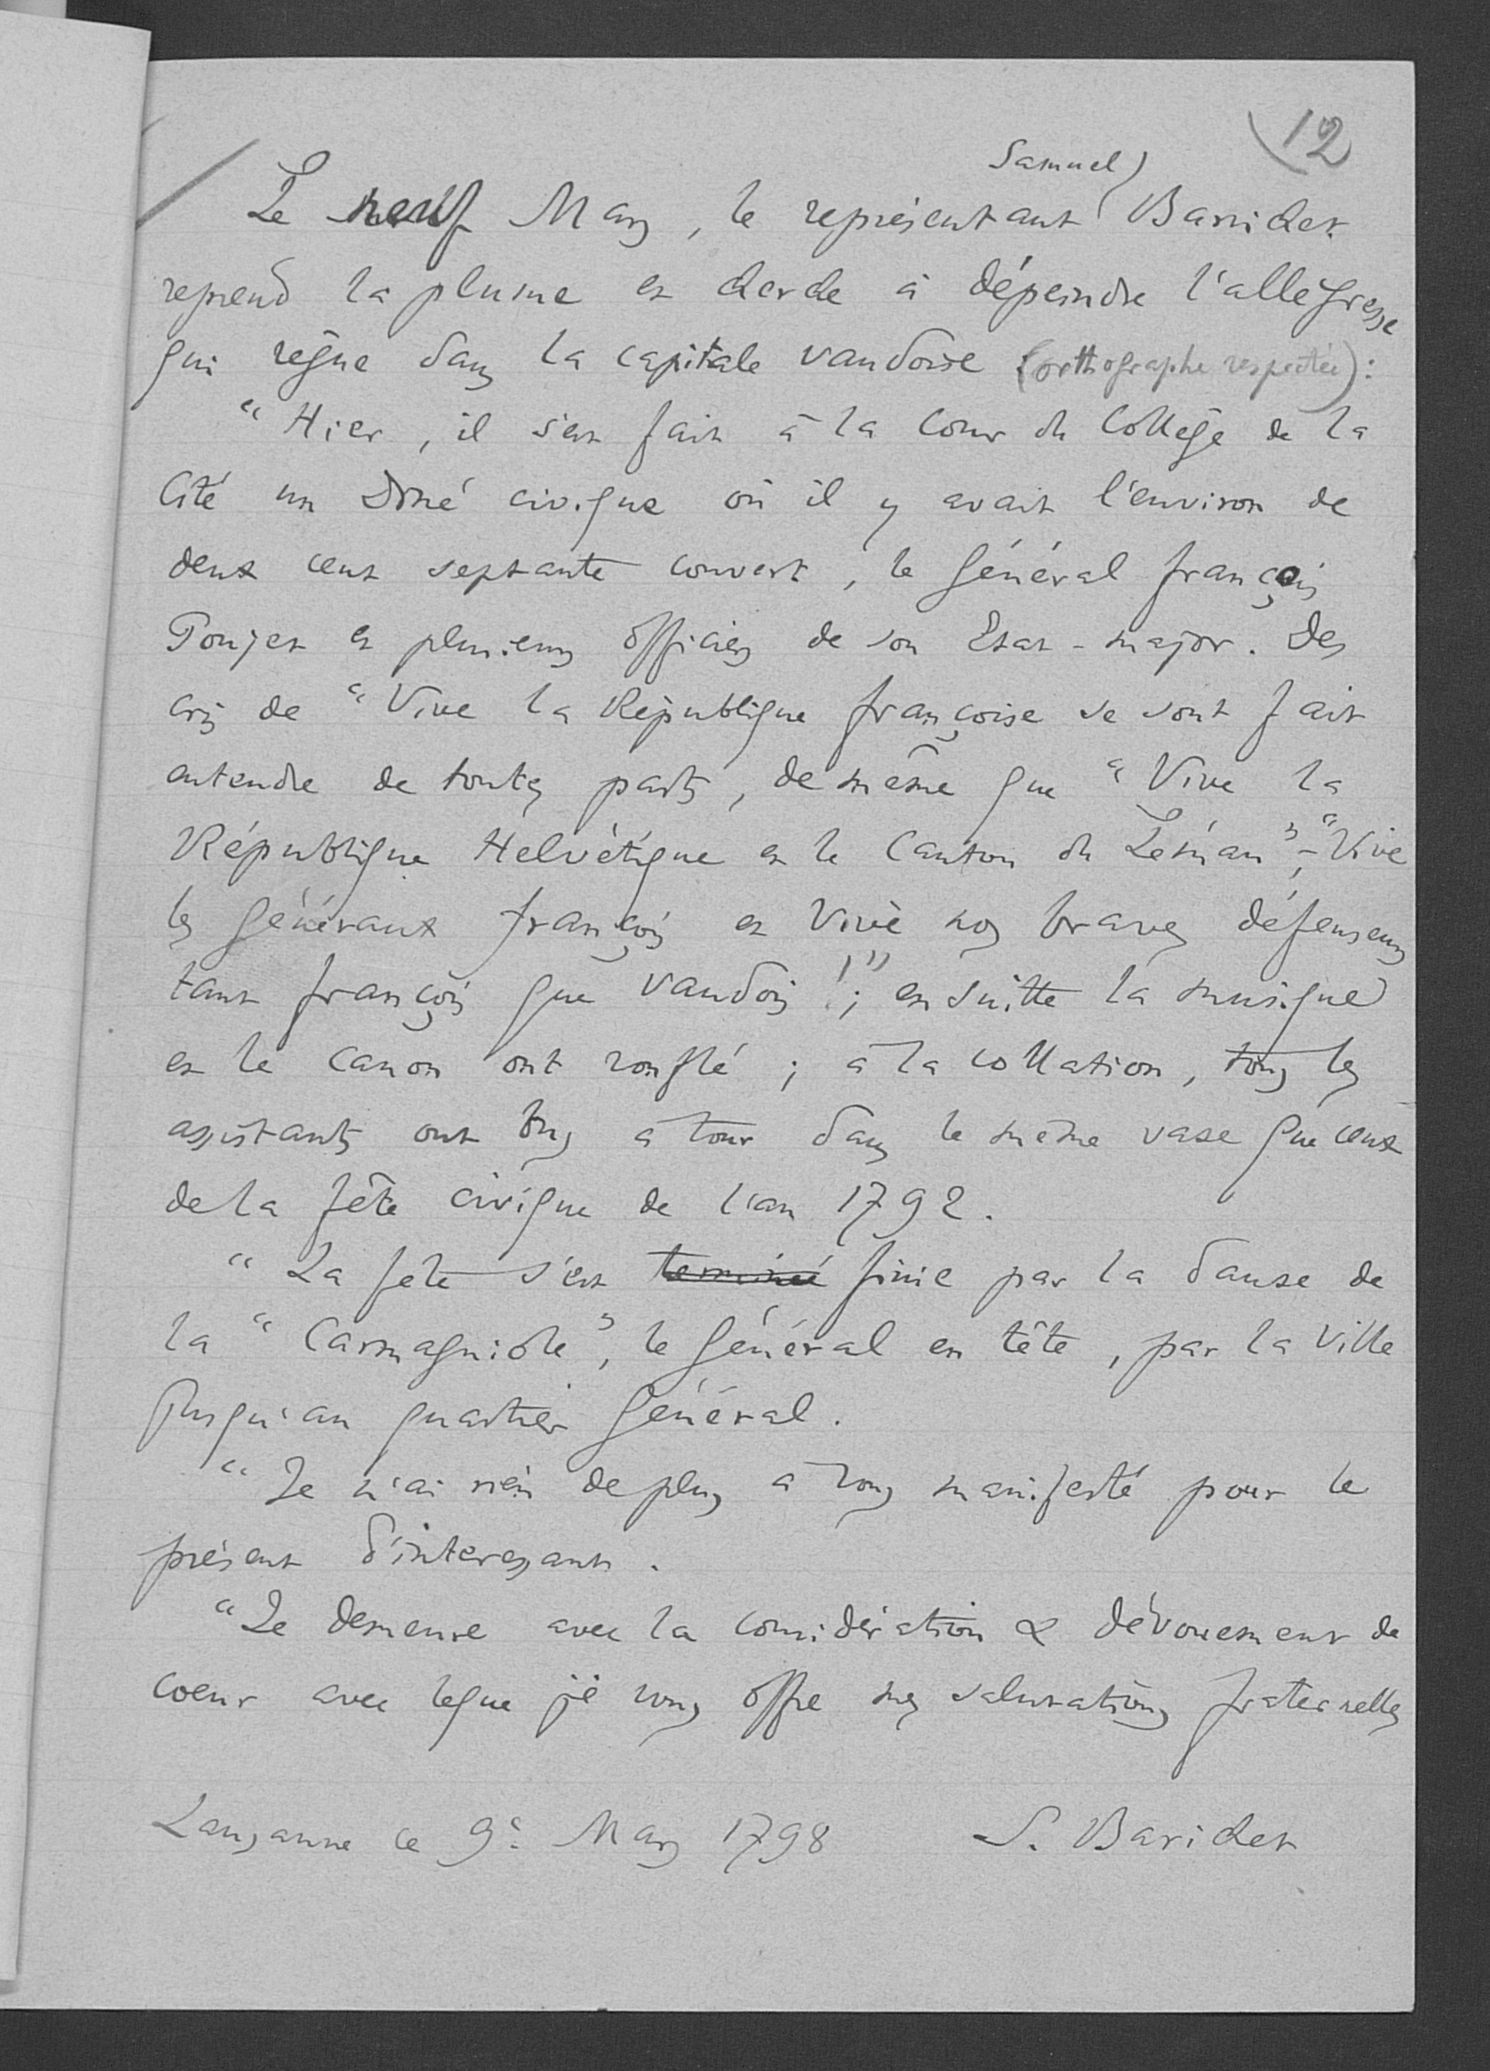 12
Samuel
Le neuf Mars, le représentant Barichet
reprend la plume et cherche à dépeindre l'allégresse
qui règne dans la capitale vaudoise (orthographe respectée) :
"Hier, il s'est fait à la Cour du Collège de la
Cité un Diné civique où il y avait l'environ de
deux cent septante couvert, le Général françois
Pouget et plusieurs officiers de son Etat-major. Des
cris de "Vive la République françoise se sont fait
entendre de toutes parts, de même que "Vive la
République Helvétique et le Canton du Léman", - "Vive
les Généraux françois et Vive nos braves défenseurs
tant françois que vaudois !" ; ensuitte la musique
et le canon ont ronflé ; à la collation, tous les
assistants ont bus a tour dans le même vase que ceux
de la fête civique de l'an 1792.
"La fete s'est terminée finie par la danse de
la "Carmagniole", le Général en tête, par la Ville
Jusqu'au quartier Général.
"Je n'ai rien de plus a vous manifesté pour le
présent d'interessant.
"Je demeure avec la considération & dévouement de
coeur avec leque je vous offre mes salutations fraternelles
Lausanne ce 9e Mars 1798 S. Barichet